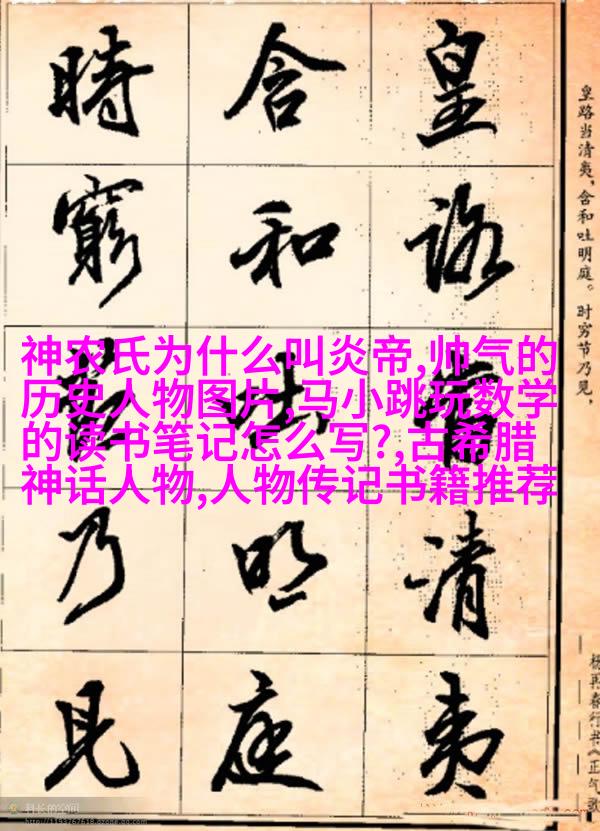 皇路當清夷
含和吐明庭
時窮節乃見
皇路当清夷,含和吐明庭。时穷节乃见,
杨再春行书《正气歌
神农氏为什么叫炎帝,帅气的
历史人物图片,马小跳玩数学
的读书笔记怎么写?,古希腊
神话人物,人物传记书籍推荐
科长的空间
http://1193767618.qzone.qq.com